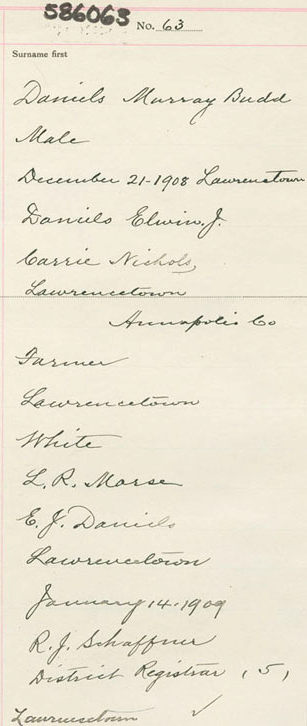 586063
No. 63
Surname first
Daniels Murray Budd
Male
December 21-1908 Lawrencetown
Daniels Elwin. J.
Carrie Nichols,
Lawrencetown
Annapolis Co
Farmer
Lawrencetown
White
L. R. Morse
E. J. Daniels
Lawrencetown
January 14-1909
R. J. Schaffner
District Registrar (5)
Lawrencetown ✓